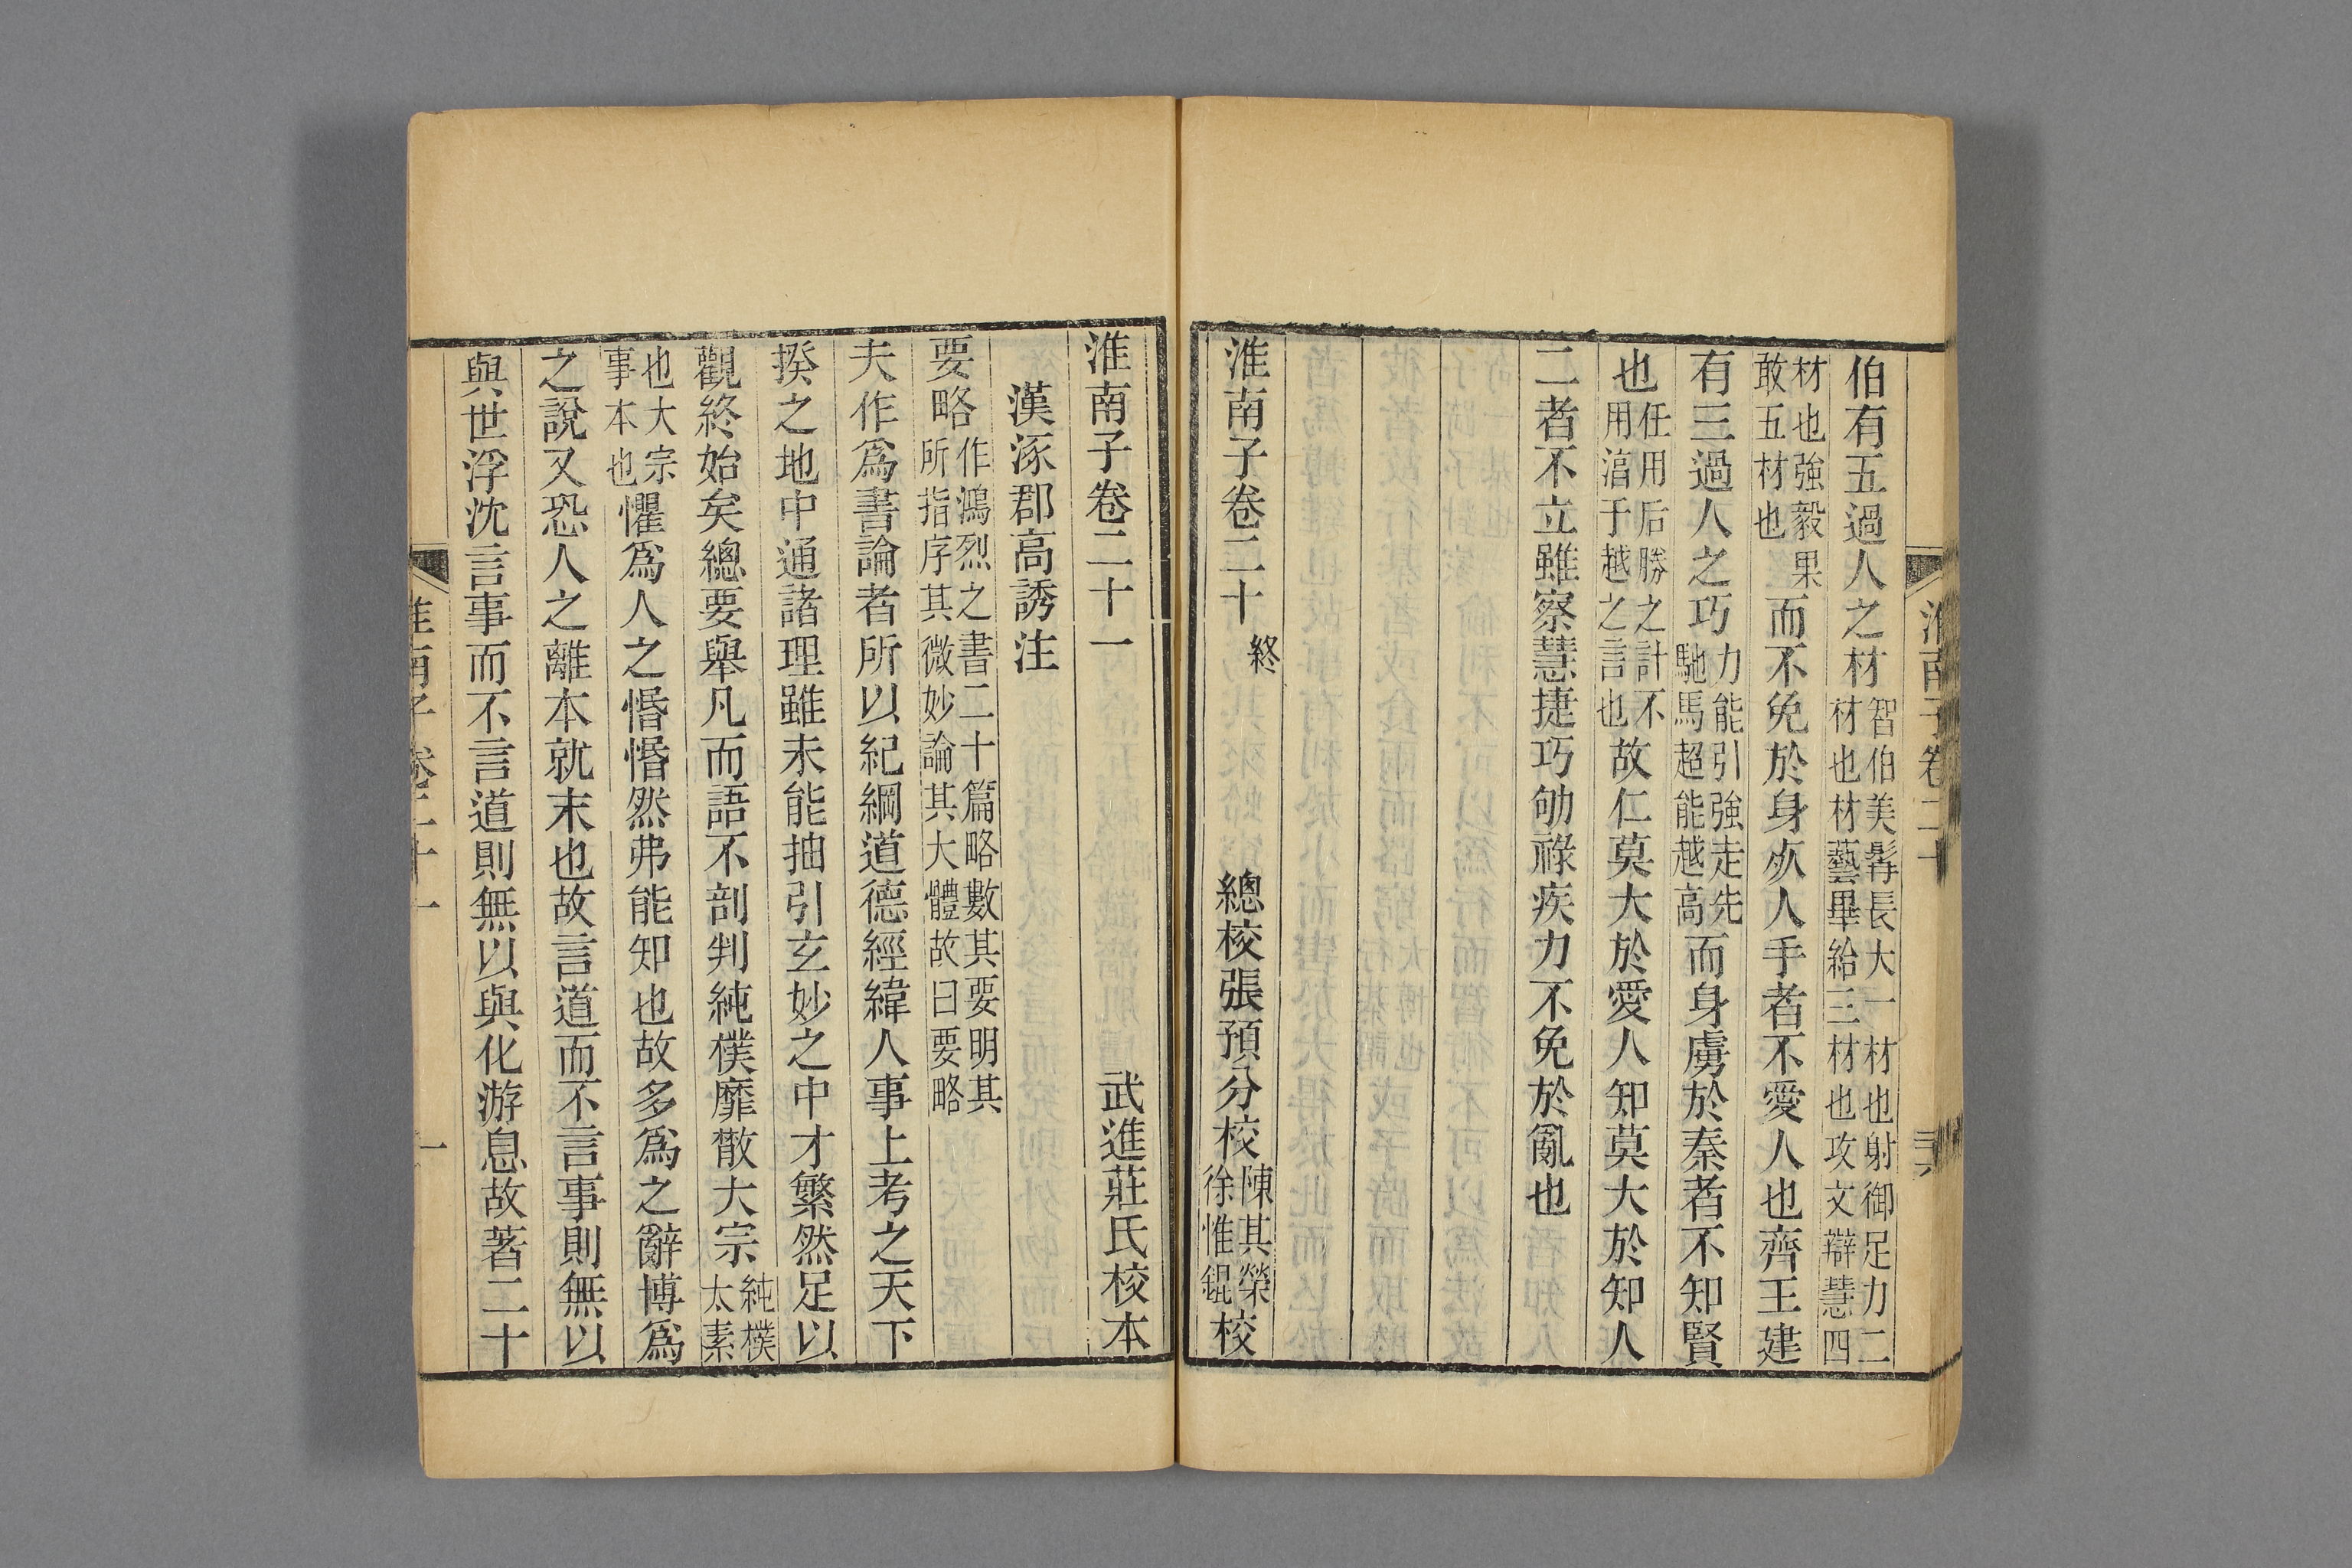 伯有五過人之材智伯美髯長大一材也射御足力二材也材藝畢給三材也攻文辯慧四
材也強毅果敢五材也而不免於身死人手者不愛人也齊王建
有三過人之巧力能引強走先馳馬超能越高而身虜於秦者不知賢
也任用后勝之計不用淳于越之言也故仁莫大於愛人知莫大於知人
二者不立雖察慧捷巧劬祿疾力不免於亂也
淮南子卷二十終 總校張預 分校陳其榮徐惟錕校
淮南子卷二十
淮南子卷二十一 武進莊氏校本
漢涿郡高誘注
要略作鴻烈之書二十篇略數其要明其所指序其微妙論其大體故曰要略
夫作爲書論者所以紀綱道德經緯人事上考之天下
揆之地中通諸理雖未能抽引玄妙之中才繁然足以
觀終始矣總要舉凡而語不剖判純樸靡散大宗純樸太素
也大宗事本也懼爲人之惛惛然弗能知也故多爲之辭博爲
之說又恐人之離本就末也故言道而不言事則無以
與世浮沈言事而不言道則無以與化游息故著二十
淮南子卷二十一 一